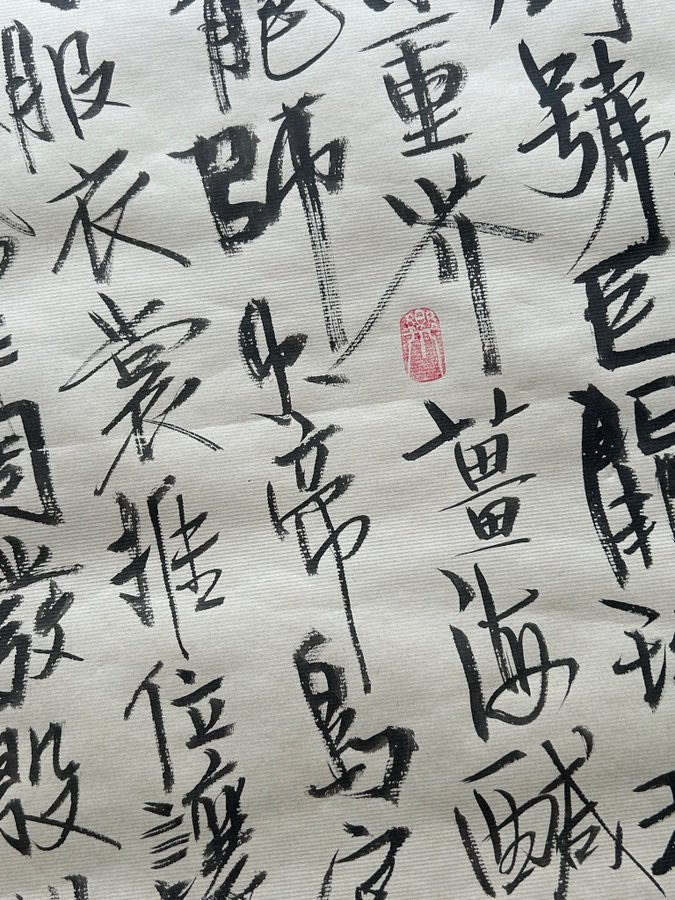 號巨闕珠
重芥薑海鹹
龍師火帝鳥官
服衣裳推位讓
周發殷